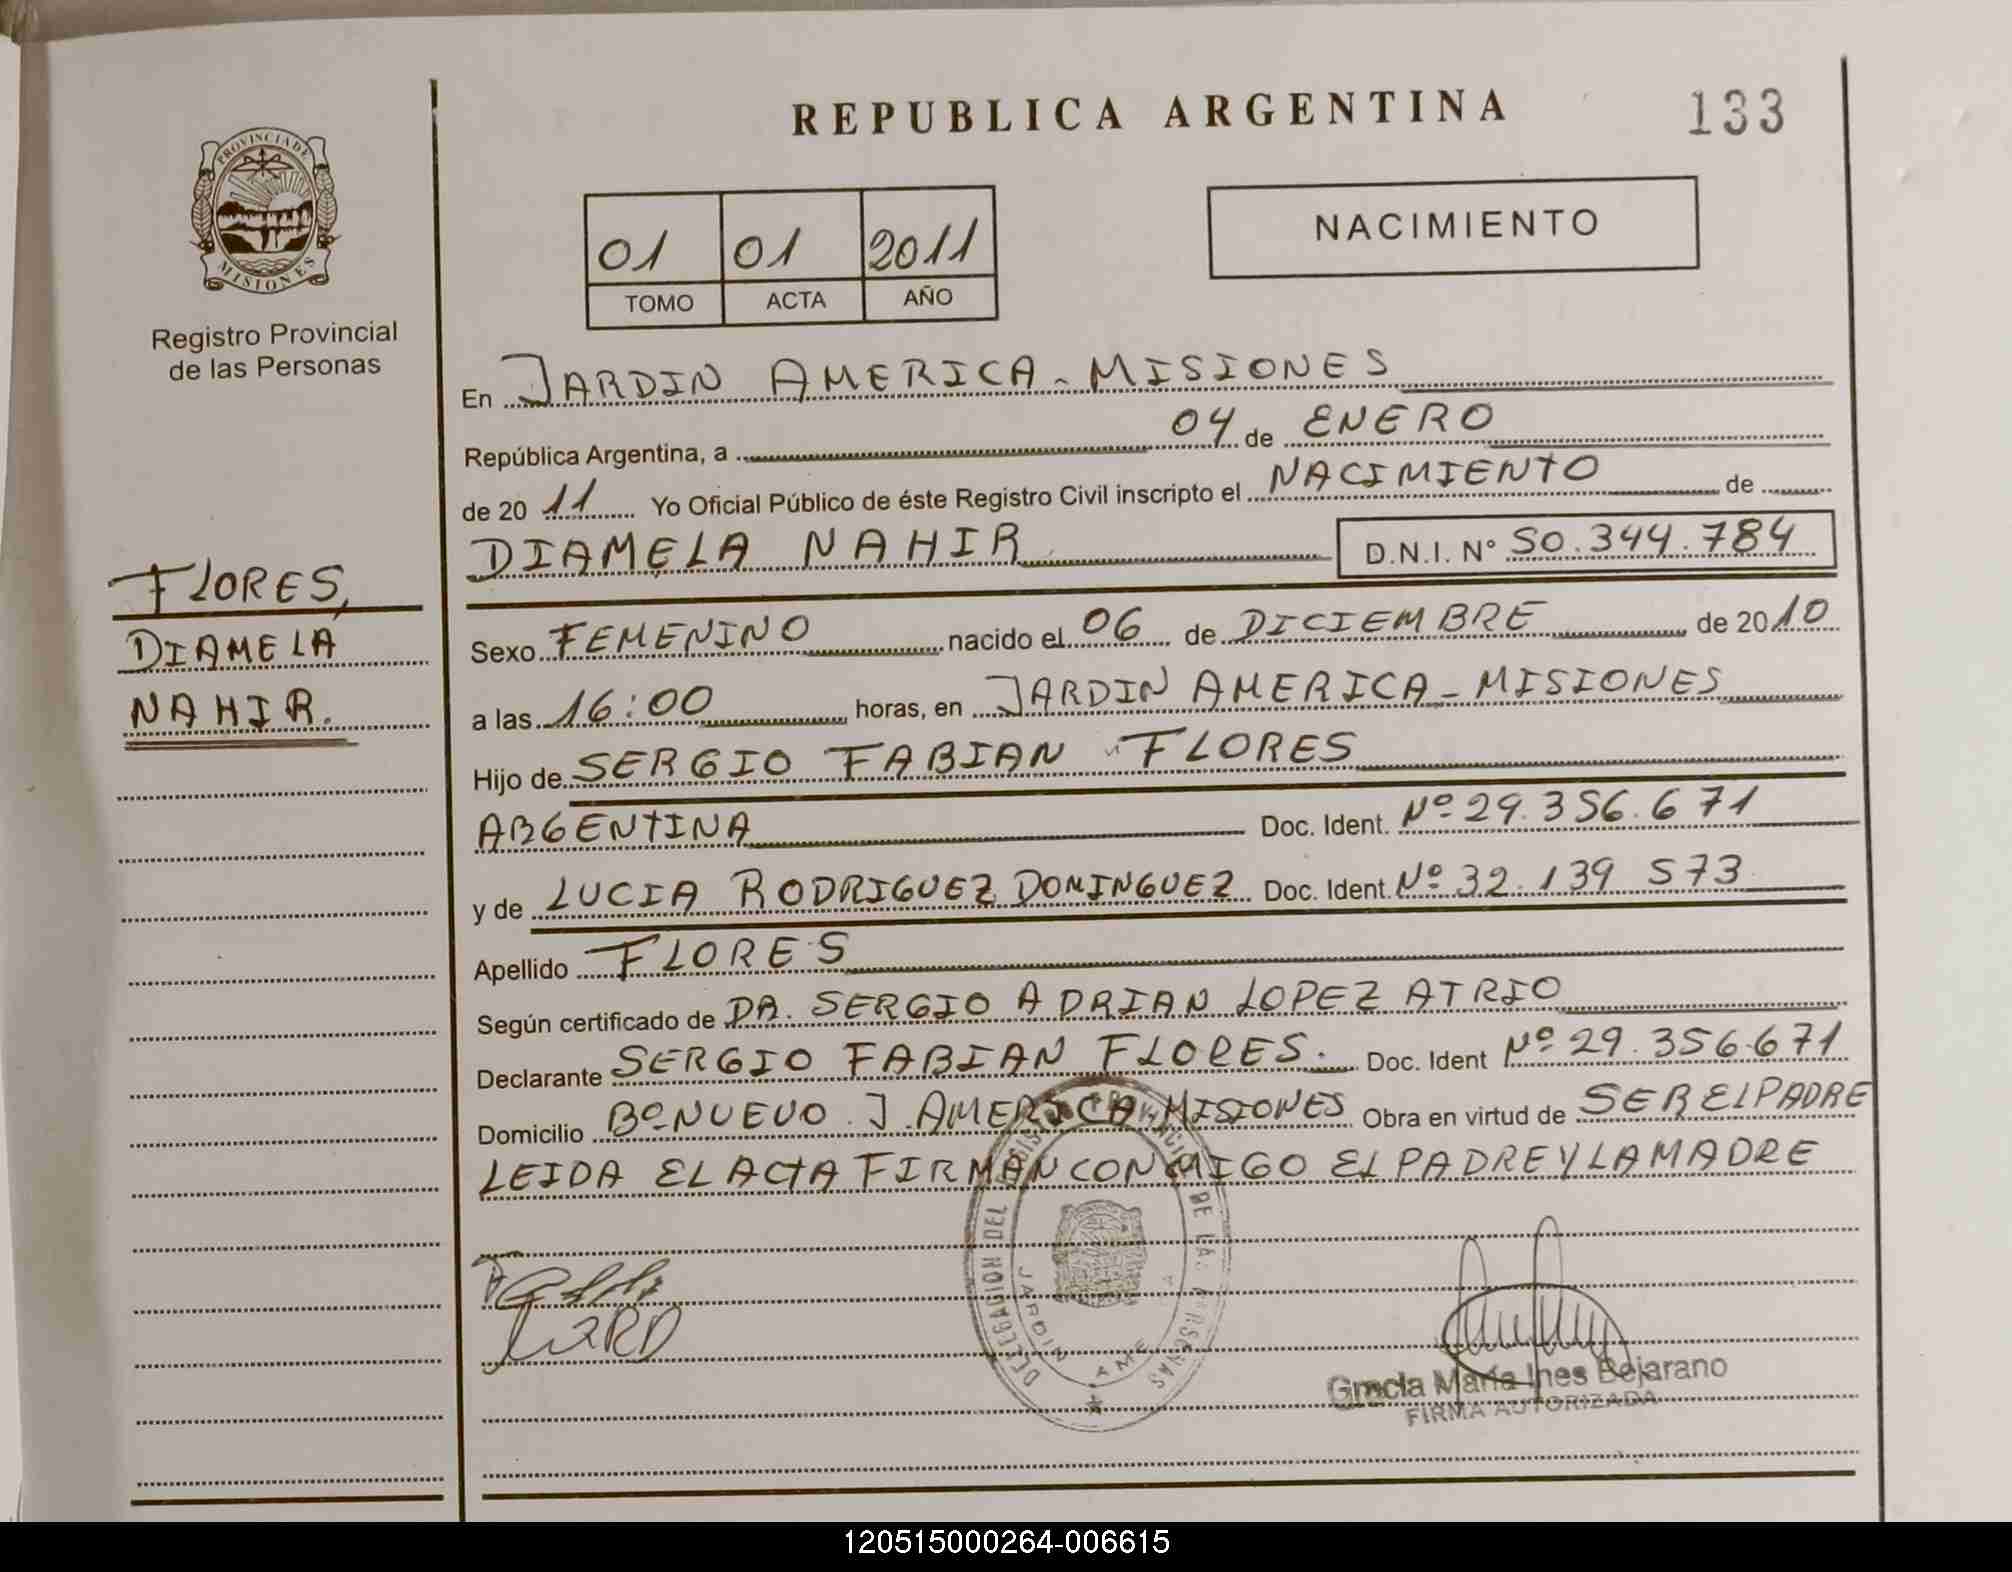 REPUBLICA ARGENTINA
133
PROVINCIA DE
MISIONES
Registro Provincial
de las Personas
01 01 2011
TOMO ACTA AÑO
NACIMIENTO
En JARDIN AMERICA - MISIONES
República Argentina, a 04 de ENERO
de 2011 Yo Oficial Público de éste Registro Civil inscripto el NACIMIENTO de
DIAMELA NAHIR D.N.I. N° 50.344.784
FLORES,
DIAMELA
NAHIR.
Sexo FEMENINO nacido el 06 de DICIEMBRE de 2010
a las 16:00 horas, en JARDIN AMERICA - MISIONES
Hijo de SERGIO FABIAN FLORES
ARGENTINA Doc. Ident. Nº 29.356.671
y de LUCIA RODRIGUEZ DOMINGUEZ Doc. Ident. Nº 32.139 573
Apellido FLORES
Según certificado de DR. SERGIO ADRIAN LOPEZ ATRIO
Declarante SERGIO FABIAN FLORES. Doc. Ident Nº 29.356.671
Domicilio Bº NUEVO . J. AMERICA, MISIONES Obra en virtud de SER EL PADRE
LEIDA EL ACTA FIRMAN CONMIGO EL PADRE Y LA MADRE
DELEGACION DEL REGISTRO PROVINCIAL DE LAS PERSONAS
JARDIN AME
Gracia María Ines Bejarano
FIRMA AUTORIZADA
120515000264-006615